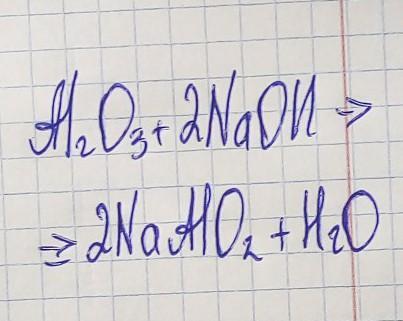 Al₂O₃+2NaOH ⇒
⇒ 2NaAlO₂+H₂O